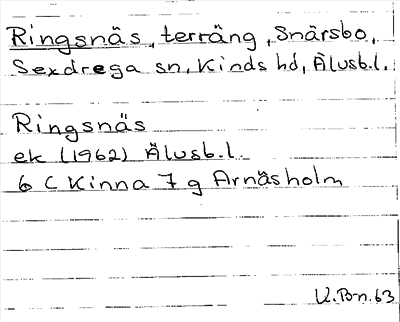 Ringsnäs, terräng, Snärsbo,
Sexdrega sn, Kinds hd, Älvsb.l.
Ringsnäs
ek (1962) Älvsb.l.
6 C Kinna 7 g Arnäsholm
U.Bn.63